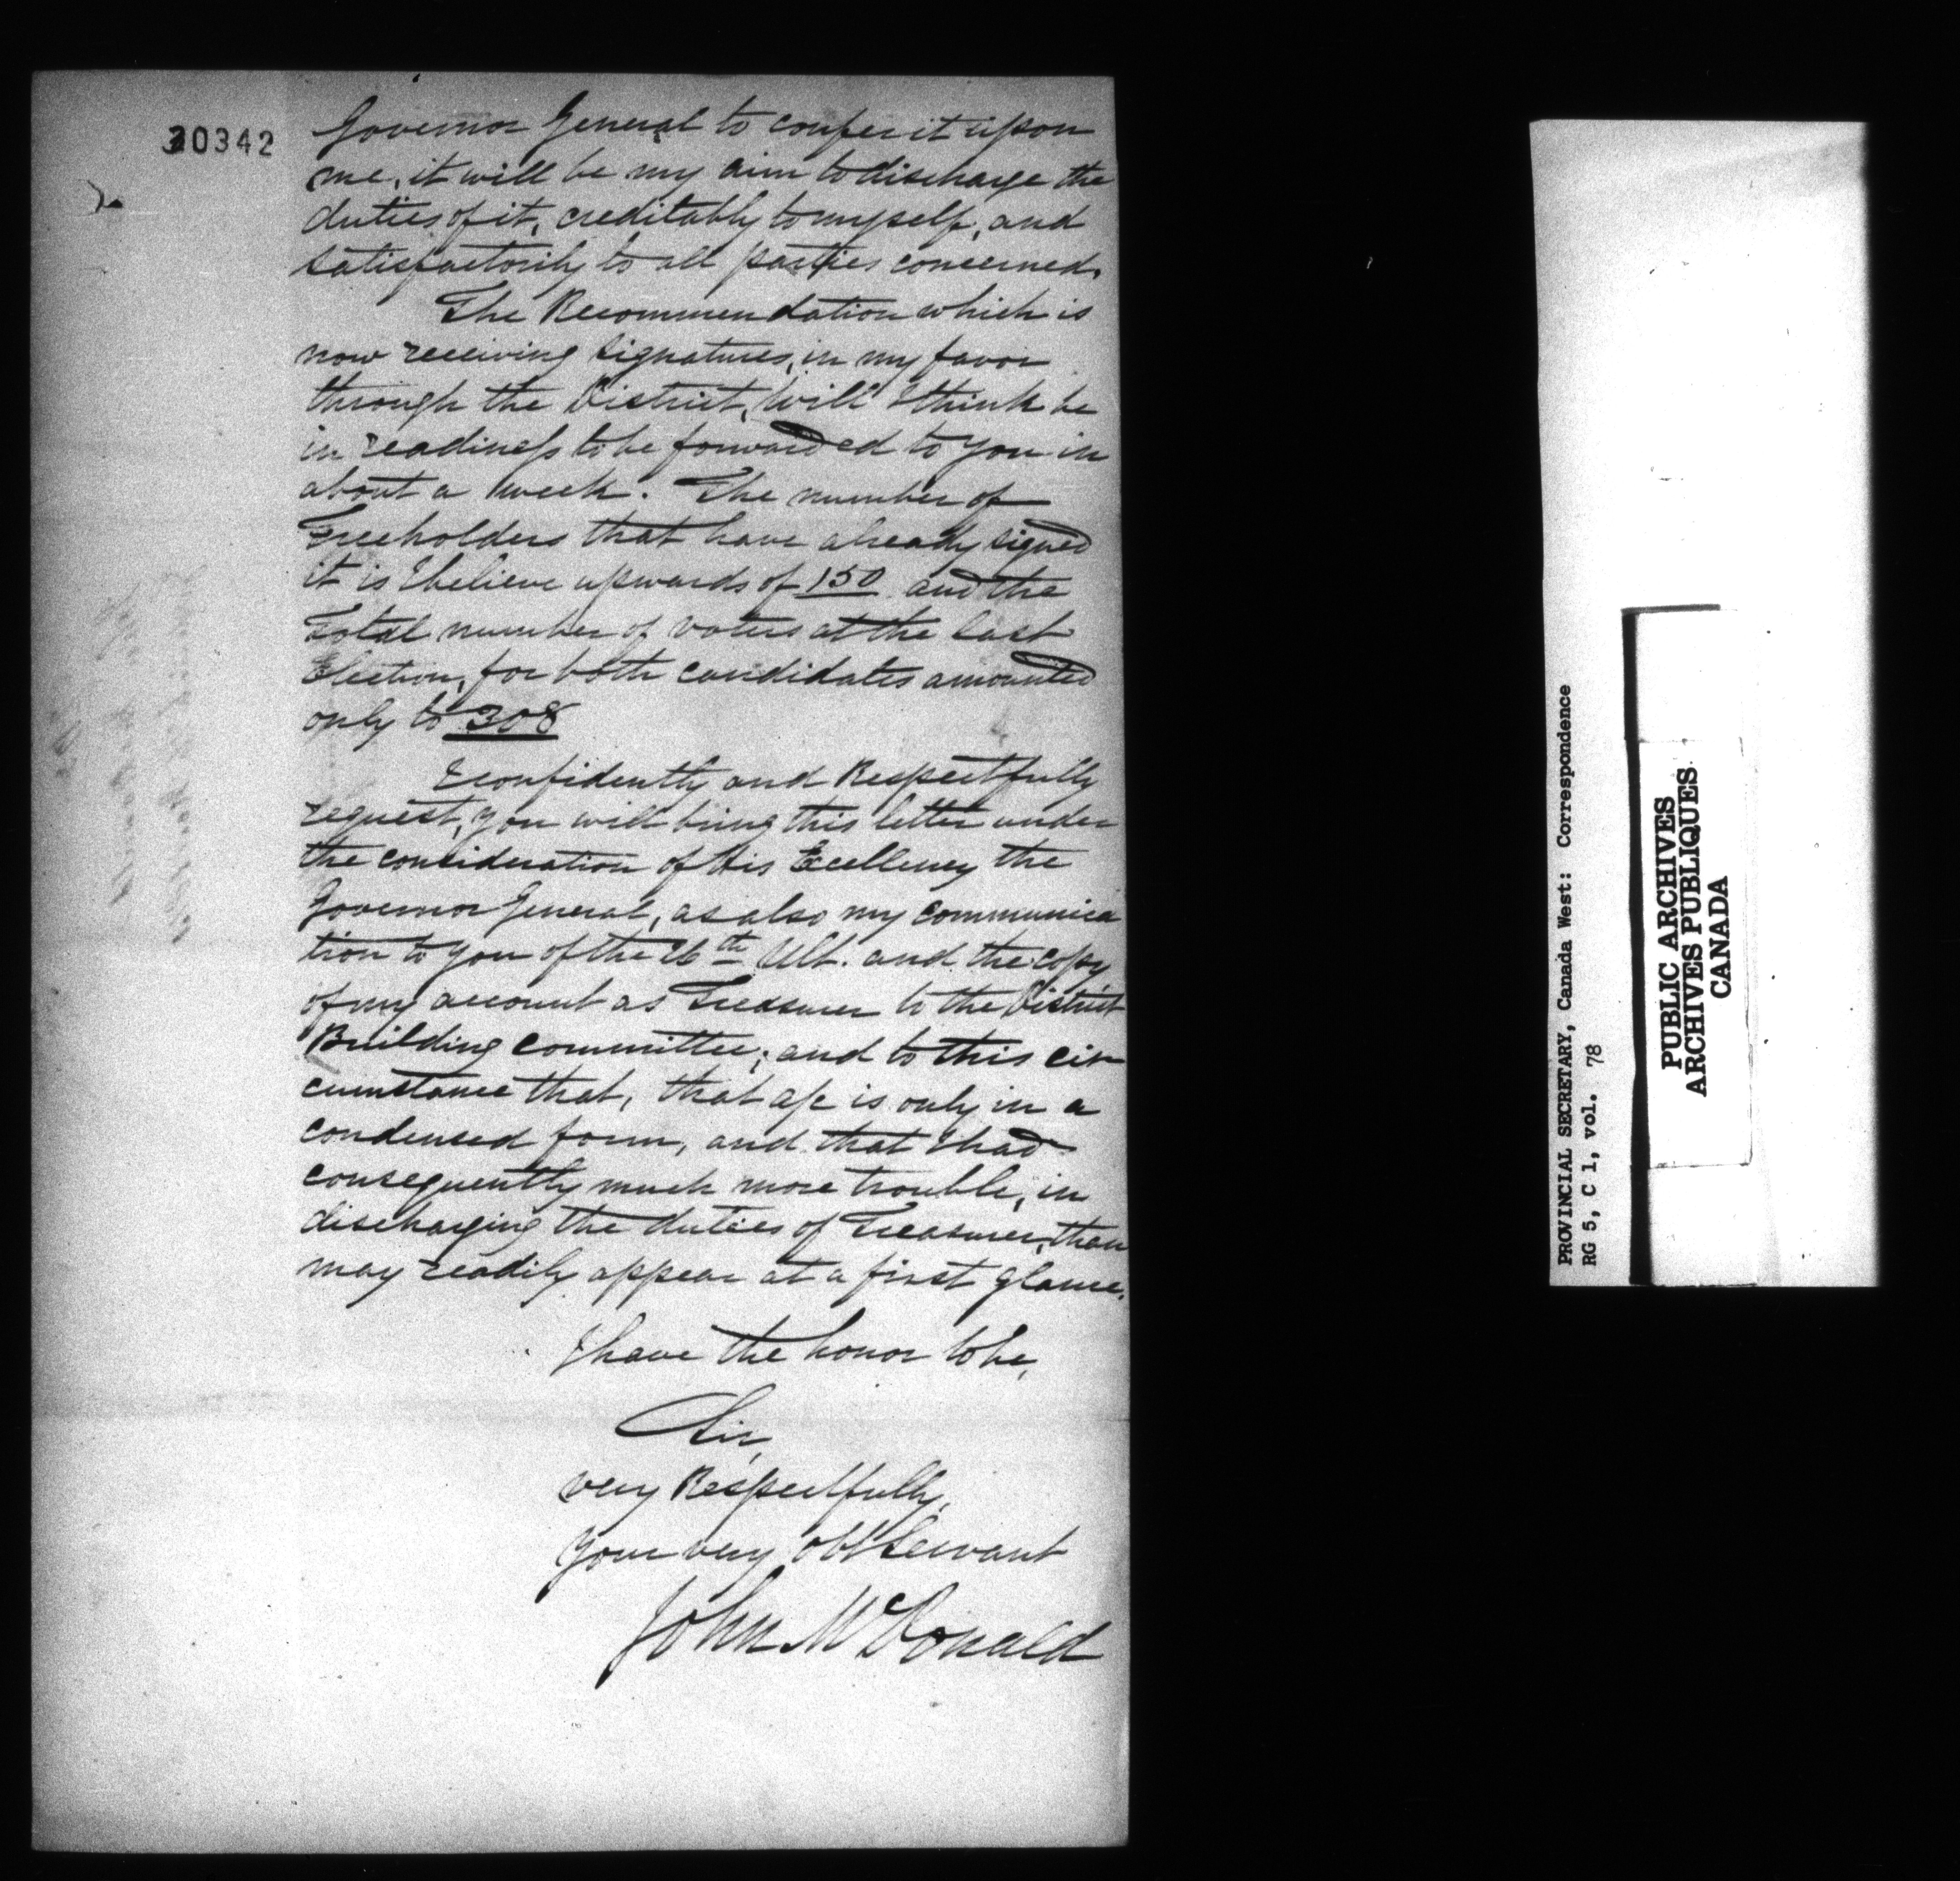 30342
Governor General to confer it upon
me, it will be my aim to discharge the
duties of it, creditably to myself, and
satisfactorily to all parties concerned.
The Recommendation which is
now receiving signatures, in my favor
through the District, will I think be
in readiness to be forwarded to you in
about a week. The number of
Freeholders that have already signed
it is I believe upwards of 150 and the
Total number of voters at the last
Election, for both candidates amounted
only to 308
I confidently and Respectfully
request, you will bring this letter under
the consideration of His Excellency the
Governor General, as also my communica
tion to you of the 26th Ult. and the copy
of my account as Treasurer to the District
Building committee; and to this cir
cumstance that, that a/c is only in a
condensed form, and that I had
consequently much more trouble, in
discharging the duties of Treasurer, than
may readily appear at a first glance.
I have the honor to be,
Sir,
very Respectfully,
your very obt Servant
John McDonald
PROVINCIAL SECRETARY, Canada West: Correspondence
RG 5, C 1, vol. 78
PUBLIC ARCHIVES
ARCHIVES PUBLIQUES
CANADA